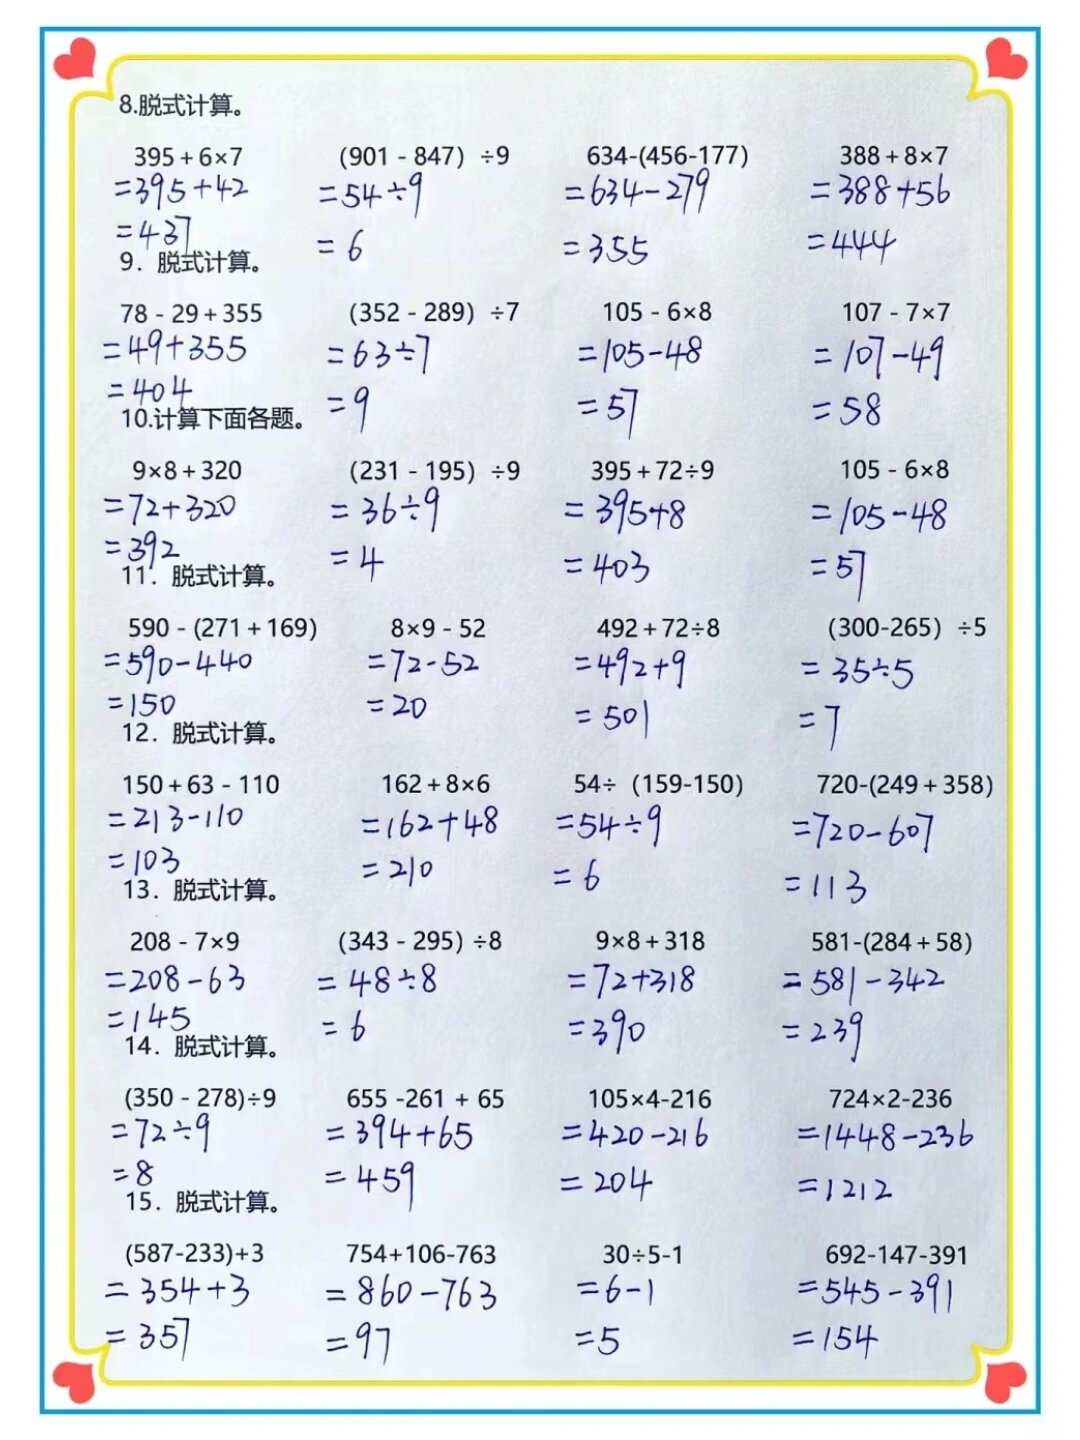 8.脱式计算。
395+6×7 (901-847) ÷9 634-(456-177) 388+8×7
=395+42 =54÷9 =634-279 =388+56
=437 =6 =355 =444
9. 脱式计算。
78-29+355 (352-289) ÷7 105-6×8 107-7×7
=49+355 =63÷7 =105-48 =107-49
=404 =9 =57 =58
10.计算下面各题。
9×8+320 (231-195) ÷9 395+72÷9 105-6×8
=72+320 =36÷9 =395+8 =105-48
=392 =4 =403 =57
11. 脱式计算。
590-(271+169) 8×9-52 492+72÷8 (300-265) ÷5
=590-440 =72-52 =492+9 =35÷5
=150 =20 =501 =7
12. 脱式计算。
150+63-110 162+8×6 54÷ (159-150) 720-(249+358)
=213-110 =162+48 =54÷9 =720-607
=103 =210 =6 =113
13. 脱式计算。
208-7×9 (343-295) ÷8 9×8+318 581-(284+58)
=208-63 =48÷8 =72+318 =581-342
=145 =6 =390 =239
14. 脱式计算。
(350-278)÷9 655-261+65 105×4-216 724×2-236
=72÷9 =394+65 =420-216 =1448-236
=8 =459 =204 =1212
15. 脱式计算。
(587-233)+3 754+106-763 30÷5-1 692-147-391
=354+3 =860-763 =6-1 =545-391
=357 =97 =5 =154